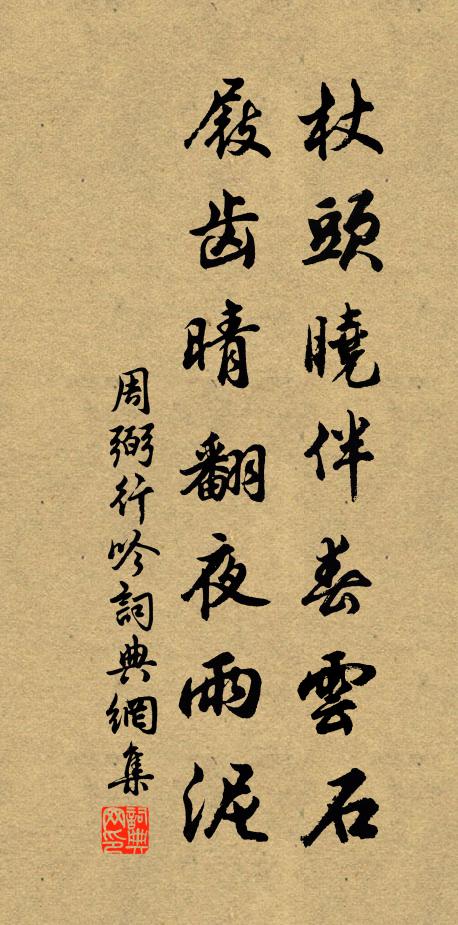 杖頭曉伴春雲石
屐齿晴翻夜雨泥
周弼行吟詞典網集
詞典网印